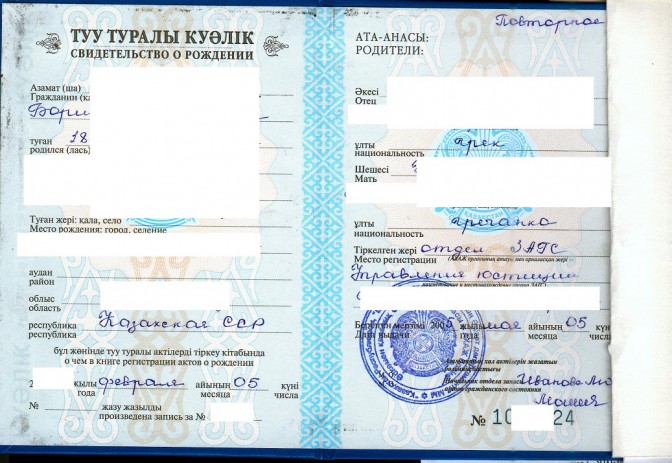 ТУУ ТУРАЛЫ КУӘЛІК
СВИДЕТЕЛЬСТВО О РОЖДЕНИИ
Азамат (ша)
Гражданин
туған 18
родился (лась)
Туған жері: қала, село
Место рождения: город, селение
аудан
район
облыс
область
республика Казахская ССР
республика
бұл жөнінде туу туралы актілерді тіркеу кітабында
о чем в книге регистрации актов о рождении
2 жылы февраля айының 05 күні
года месяца числа
№ жазу жазылды
произведена запись за №
Повторное
АТА-АНАСЫ:
РОДИТЕЛИ:
Әкесі
Отец
ұлты грек
национальность
Шешесі
Мать
ҚАЗАҚСТАН
ұлты гречанка
национальность
Тіркелген жері отдел ЗАГС
Место регистрации
Управления юстиции
Берілген мерзімі 2005 жылы мая айының 05 күні
Дата выдачи года месяца числа
М.О.
Начальник отдела записи Иванова
актов гражданского состояния
№ 10 24